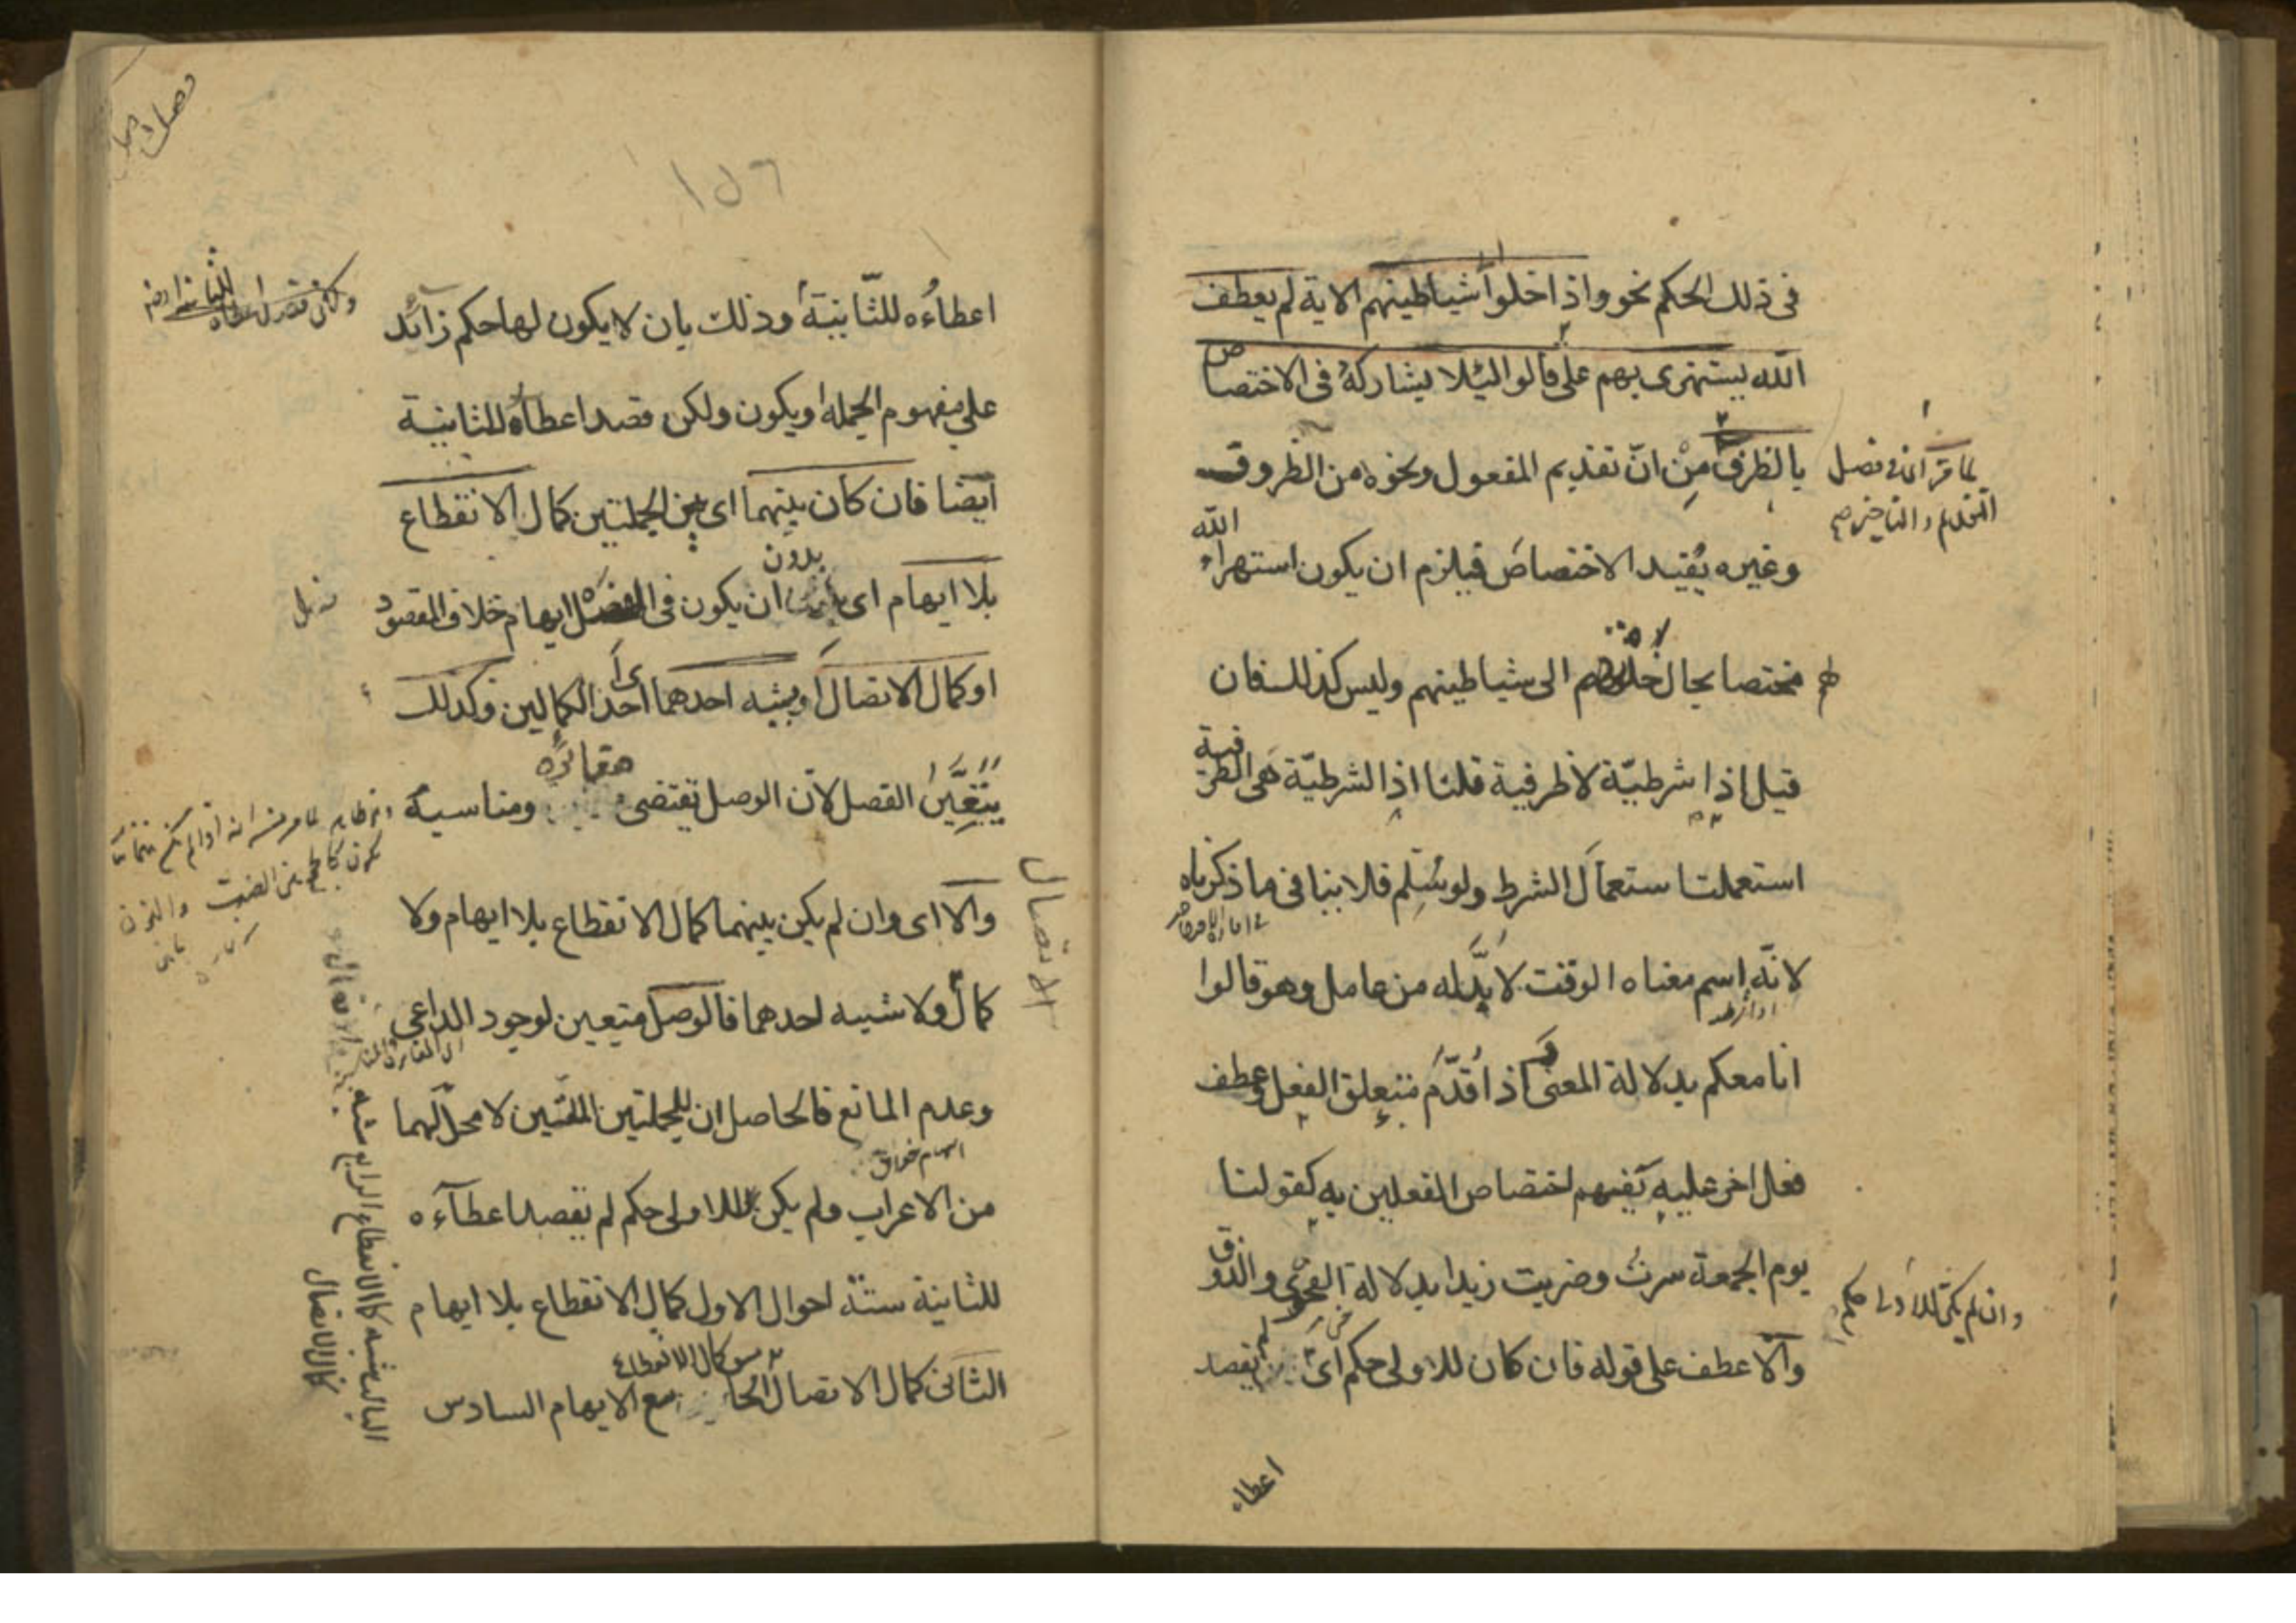 في ذلك الحكم نحو واذا خلوا الى شياطينهم الاية لم يعطف
الله يستهزئ بهم على قالوا لئلا يشاركه في الاختصاص
بالظرف من انّ تقديم المفعول ونحوه من الظروف
وغيره يفيد الاختصاص فيلزم ان يكون استهزاء الله
بهم مختصا بحال خلوهم الى شياطينهم وليس كذلك فان
قيل اذا شرطيّة لا ظرفية قلنا اذا الشرطيّة هي الظرفية
استعملت استعمال الشرط ولو سُلِم فلا ينافي ما ذكرناه
لانّه اسم معناه الوقت لا بدّ له من عامل وهو قالوا
انا معكم بدلالة المعنى واذا قُدّم متعلق الفعل وعطف
فعل اخر عليه يفهم اختصاص الفعلين به كقولنا
يوم الجمعة سرتُ وضربت زيدا بدلالة الفحوى والذوق
والا عطف على قوله فان كان للاولى حكم اى لم يقصد
اعطاء
لما مرّ في فصل
التقديم والتاخير
وان لم يكن للاولى حكم
١٥٦
اعطاءُه للثّانية وذلك بان لا يكون لها حكم زائد
على مفهوم الجملة او يكون ولكن قصد اعطاؤه للثانية
ايضا فان كان بينهما اى بين الجملتين كمال الانقطاع
بلا ايهام اى بدون ان يكون في الفصل ايهام خلاف المقصود
او كمال الاتصال او شبه احدهما اى احد الكمالين فكذلك
يتعيّن الفصل لان الوصل يقتضى مغايرة ومناسبة
والا اى وان لم يكن بينهما كمال الانقطاع بلا ايهام ولا
كمال الاتصال ولا شبه احدهما فالوصل متعين لوجود الداعي
وعدم المانع فالحاصل ان للجملتين اللتين لا محلّ لهما
من الاعراب ولم يكن للاولى حكم لم يقصد اعطآءه
للثانية ستّة احوال الاول كمال الانقطاع بلا ايهام
الثاني كمال الاتصال
الثالث شبه كمال الانقطاع الرابع شبه
كمال الاتصال
كمال الانقطاع
مع الايهام السادس